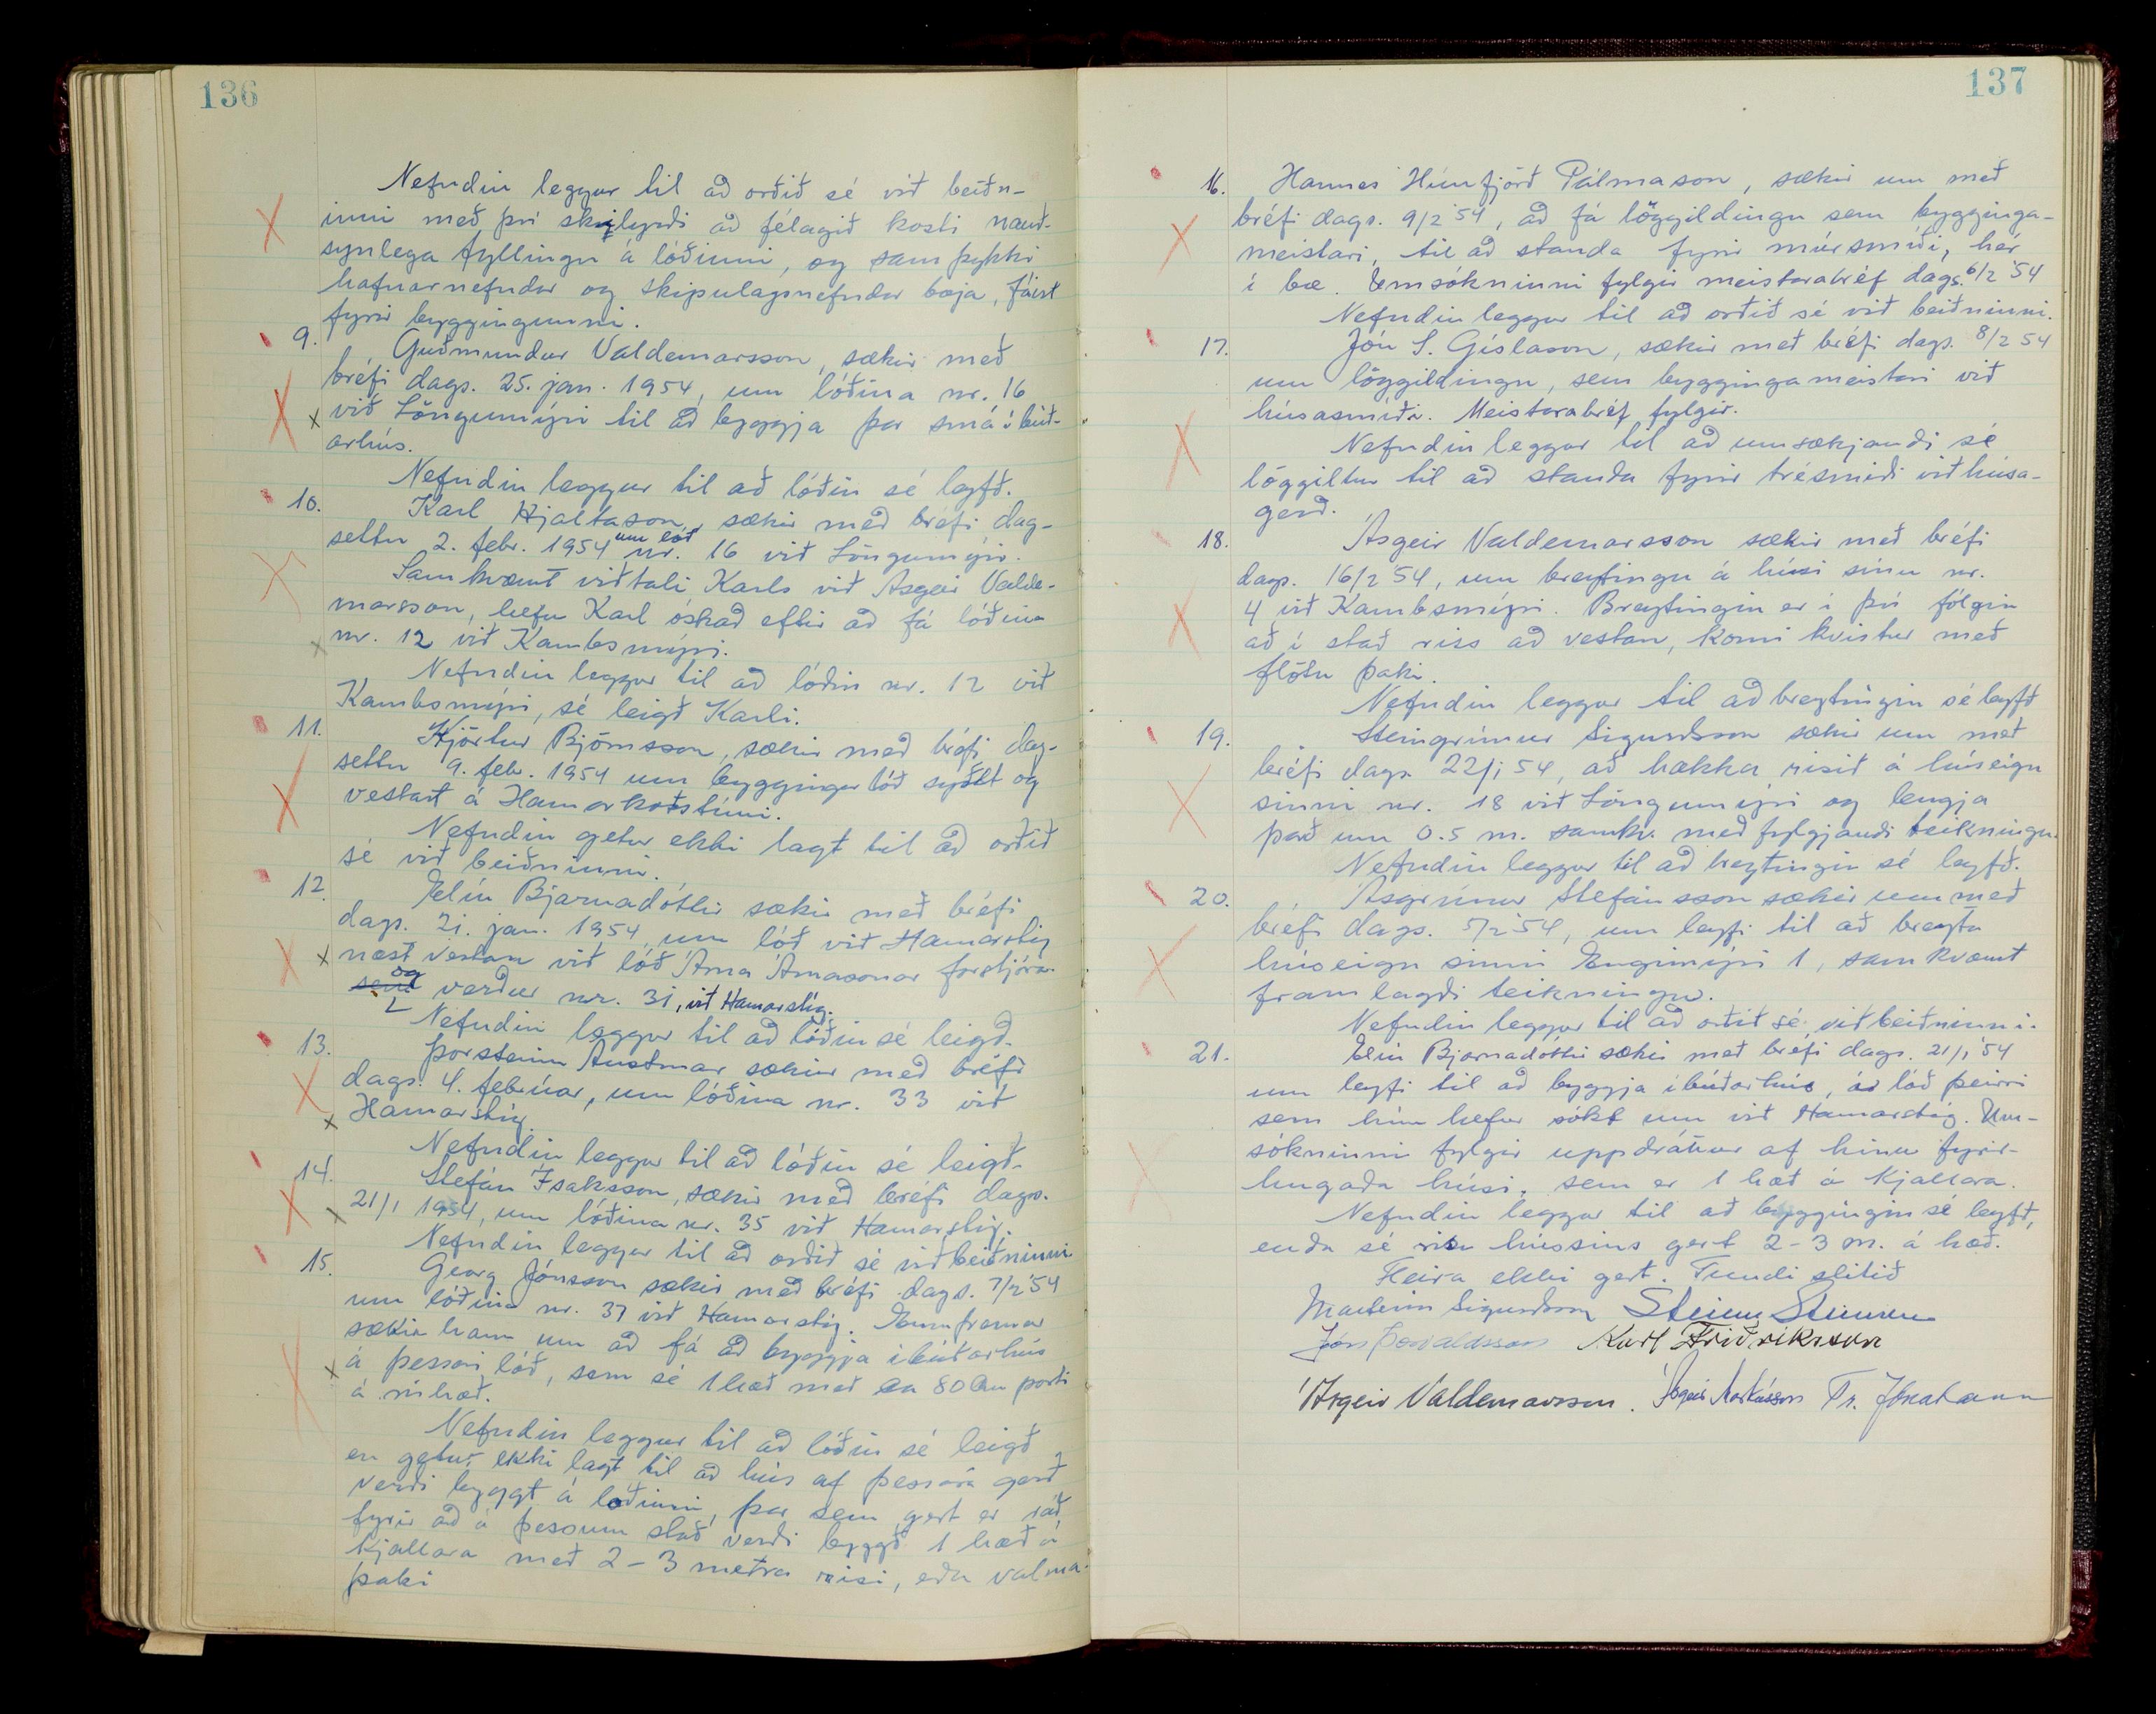 136
Nefndin leggur til að orðið sé við beiðn-
inni með því skilyrði að félagið kosti nauð-
synlega fyllingu á lóðinni, og samþykki
hafnarnefndar og skipulagsnefndar bæja, fáist
fyrir byggingunni.
9. Guðmundur Valdemarsson, sækir með
bréfi dags. 25. jan. 1954, um lóðina nr. 16
við Löngumýri til að byggja þar smáíbúð-
arhús.
Nefndin leggur til að lóðin sé leyfð.
10. Karl Hjaltason, sækir með bréfi dag-
settu 2. febr. 1954 um lóð nr. 16 við Löngumýri.
Samkvæmt viðtali Karls við Ásgeir Valde-
marsson, hefur Karl óskað eftir að fá lóðina
nr. 12 við Kambsmýri.
Nefndin leggur til að lóðin nr. 12 við
Kambsmýri, sé leigð Karli.
11. Hjörtur Björnsson, sækir með bréfi dag-
settu 9. febr. 1954 um byggingarlóð syðst og
vestast á Hamarkotstúni.
Nefndin getur ekki lagt til að orðið
sé við beiðninni.
12. Elín Bjarnadóttir sækir með bréfi
dags. 21. jan. 1954, um lóð við Hamarstíg
næst vestan við lóð Árna Árnasonar forstjóra
og verður nr. 31, við Hamarstíg.
Nefndin leggur til að lóðin sé leigð.
13. Þorsteinn Austmar sækir með bréfi
dags. 4. febrúar, um lóðina nr. 33 við
Hamarstíg.
Nefndin leggur til að lóðin sé leigð.
14. Stefán Ísaksson, sækir með bréfi dags.
21/1 1954, um lóðina nr. 35 við Hamarstíg.
Nefndin leggur til að orðið sé við beiðninni.
15. Georg Jónsson sækir með bréfi dags. 7/2 '54
um lóðina nr. 37 við Hamarstíg. Ennfremur
sækir hann um að fá að byggja íbúðarhús
á þessari lóð, sem sé 1 hæð með ca 80 cm porti
á rishæð.
Nefndin leggur til að lóðin sé leigð
en getur ekki lagt til að hús af þessari gerð
verði byggt á lóðinni, þar sem gert er ráð
fyrir að á þessum stað verði byggð 1 hæð á
kjallara með 2-3 metra risi, eða valma-
þaki
137
16. Hannes Húnfjörð Pálmason, sækir um með
bréfi dags. 9/2 '54, að fá löggildingu sem bygginga-
meistari, til að standa fyrir múrsmíði, hér
í bæ. Umsókninni fylgir meistarabréf dags. 6/2 '54
Nefndin leggur til að orðið sé við beiðninni.
17. Jón S. Gíslason, sækir með bréfi dags. 8/2 54
um löggildingu, sem byggingameistari við
húsasmíði. Meistarabréf fylgir.
Nefndin leggur til að umsækjandi sé
löggiltur til að standa fyrir trésmíði við húsa-
gerð.
18. Ásgeir Valdemarsson sækir með bréfi
dags. 16/2 '54, um breytingu á húsi sínu nr.
4 við Kambsmýri. Breytingin er í því fólgin
að í stað riss að vestan, komi kvistur með
flötu þaki.
Nefndin leggur til að breytingin sé leyfð
19. Steingrímur Sigurðsson sækir um með
bréfi dags. 22/1 54, að hækka risið á húseign
sinni nr. 18 við Löngumýri og lengja
það um 0.5 m. samkv. meðfylgjandi teikningu.
Nefndin leggur til að breytingin sé leyfð.
20. Ásgrímur Stefánsson sækir um með
bréfi dags. 5/2 54, um leyfi til að breyta
húseign sinni Engimýri 1, samkvæmt
framlagðri teikningu.
Nefndin leggur til að orðið sé við beiðninni.
21. Elín Bjarnadóttir sækir með bréfi dags. 21/1 '54
um leyfi til að byggja íbúðarhús, á lóð þeirri
sem hún hefur sókt um við Hamarstíg. Um-
sókninni fylgir uppdráttur af hinu fyrir-
hugaða húsi, sem er 1 hæð á kjallara.
Nefndin leggur til að byggingin sé leyfð,
enda sé ris hússins gert 2-3 m. á hæð.
Fleira ekki gert. Fundi slitið
Marteinn Sigurðsson Steinn Steinsen
Jón Þorvaldsson Karl Friðriksson
Ásgeir Valdemarsson. Ásgeir Markússon